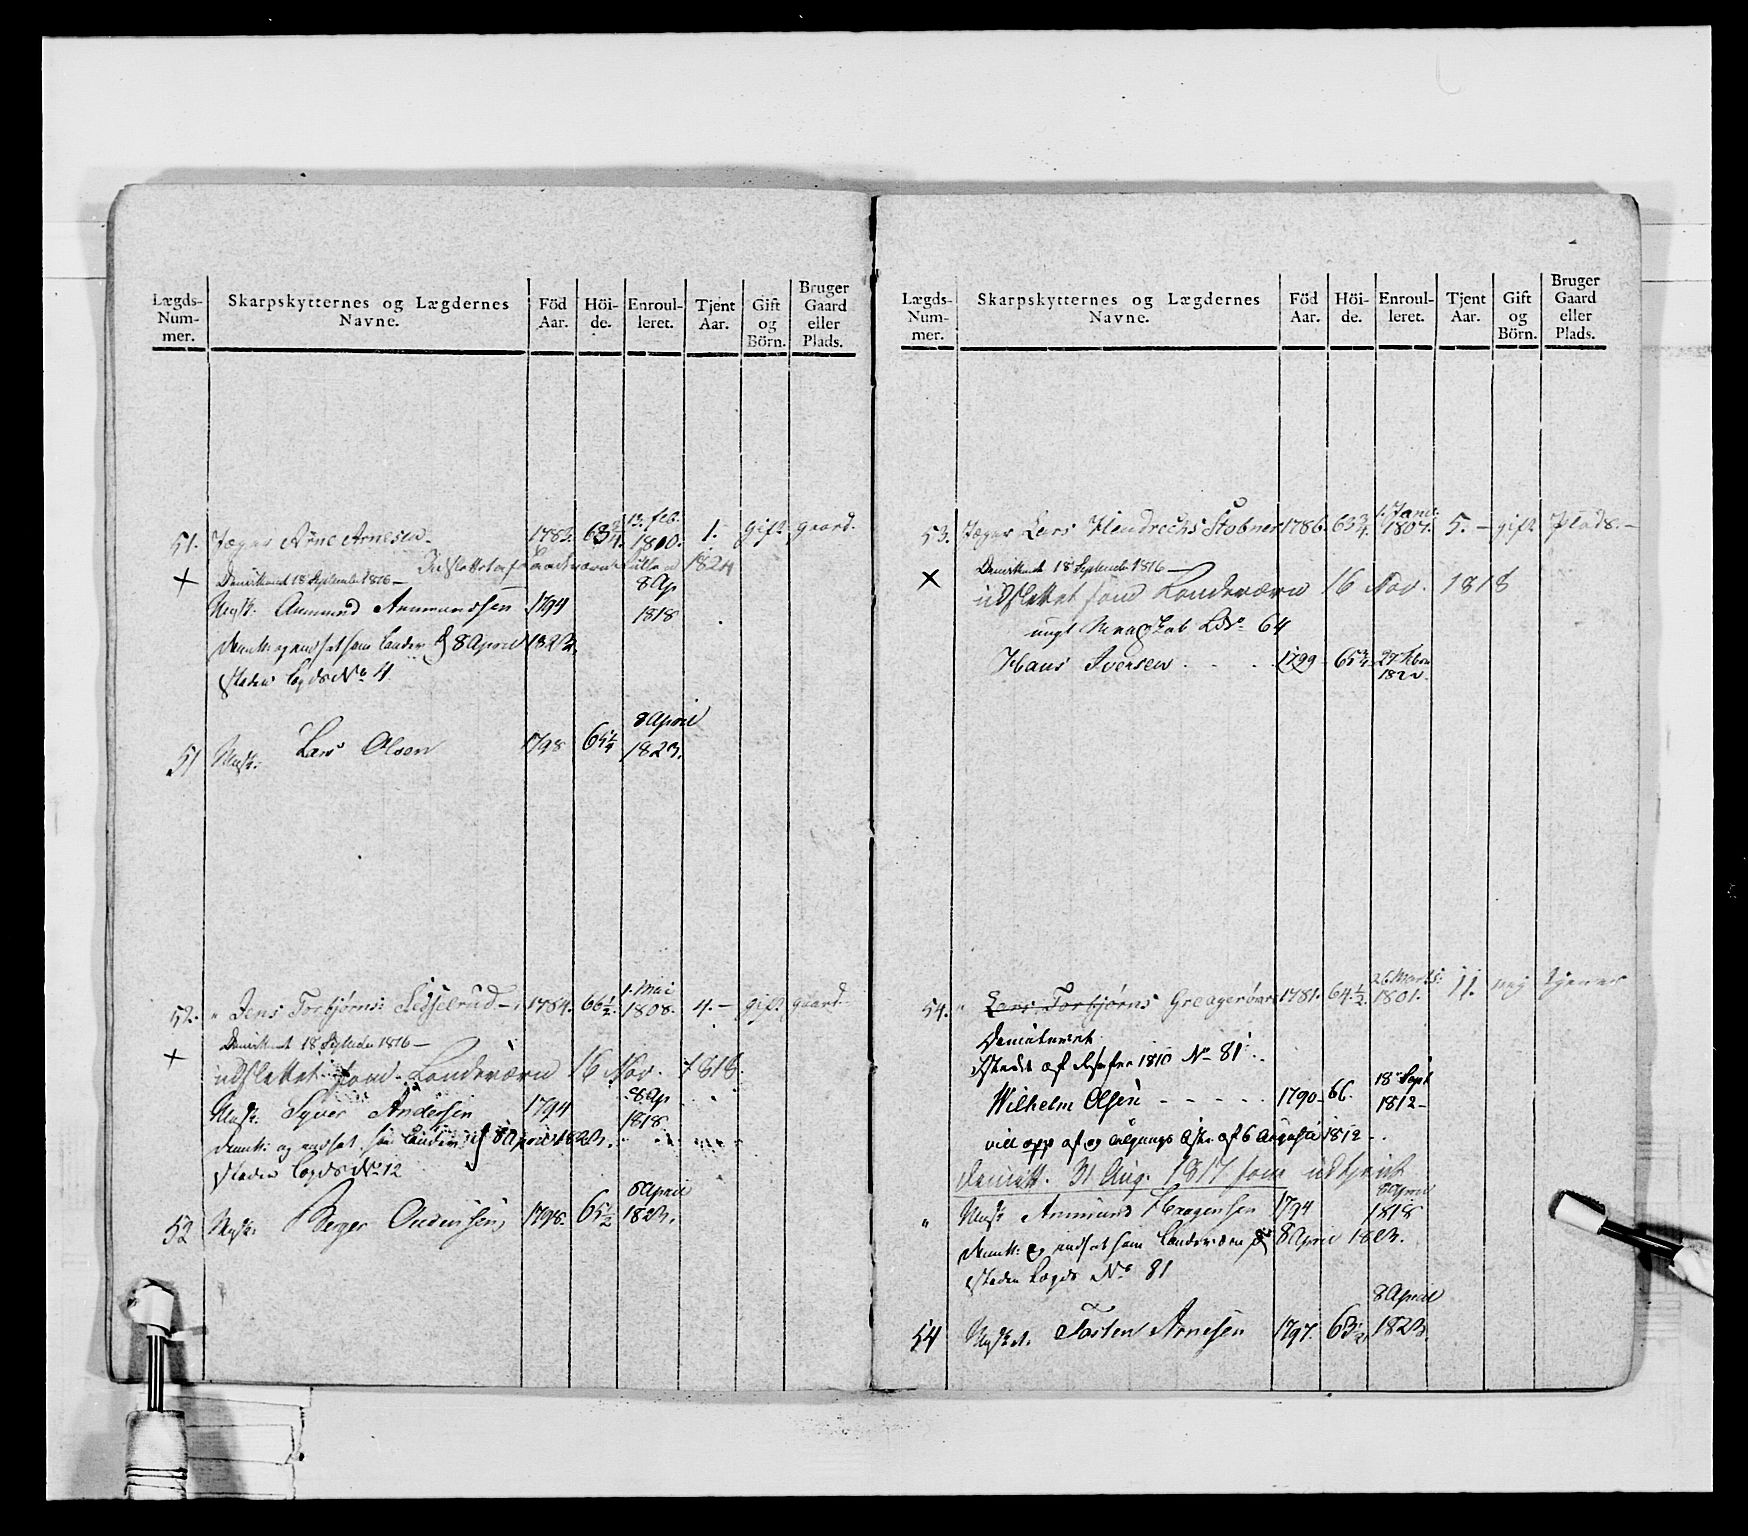 Lægds-Num-mer. Skarpskytternes og Lægdernes Navne. Föd Aar. Höi-de. Enroul-leret. Tjent Aar. Gift og Börn. Bruger Gaard eller Plads.
51. Jæger Arne Arnesen 1782. 63 3/4. 13. feb. 1810. 1. gift gaard.
Demitteret 18 September 1816 —
Udslettet af Landværns Rullen 1824
Musk: Anmund Anmundssen 1794 8 Ap 1818
demitt: og ansat som Landev: 8 April 1823.
steden Lægds No 4
51 Musk: Lars Olsen 1798 65 1/4 8 April 1823.
52. " Jens Torbjörns: Sisselrud — 1784. 66 1/2. 1. Mai 1808. 4. — gift gaard.
Demitteret 18 September 1816 —
udslettet som Landeværn 16 Nov. 1818.
Musk. Syver Andersen 1794 8 Ap 1818
demitt: og ansat som Landev: 8 April 1823.
steden Lægds No 12
52 Musk: Berger Andersen 1798. 65 1/2 8 April 1823.
Lægds-Num-mer. Skarpskytternes og Lægdernes Navne. Föd Aar. Höi-de. Enroul-leret. Tjent Aar. Gift og Börn. Bruger Gaard eller Plads.
53. Jæger Lars Hendrechs Stobner 1786. 63 3/4. 1. Janu. 1807. 5. — gift Plads. —
Demitteret 18 September 1816 —
udslettet som Landeværn 16 Nov. 1818
ungt Mandskab No. 64
Hans Iversen 1799 65 3/4 27 Febr 1822.
54. " Lars Torbjörns Greagerönn 1781. 64. 1/2. 26 Marts: 1801. 11. nej tjener
Demitteret
steden af Reserven 1810 No 81.
Wilhelm Olsen - - - - - 1790 66. 18 Sept 1812 —
af 6 Augusti 1812 —
demitt. 31 Aug. 1817 som udtjent
" Musk Anmund 1794 8 April 1818
demitt: og ansat som Landeværn 8 April 1823.
steden Lægds No 81
54 Musket. Tosten Arnesen 1797. 63 1/2 8 April 1823.